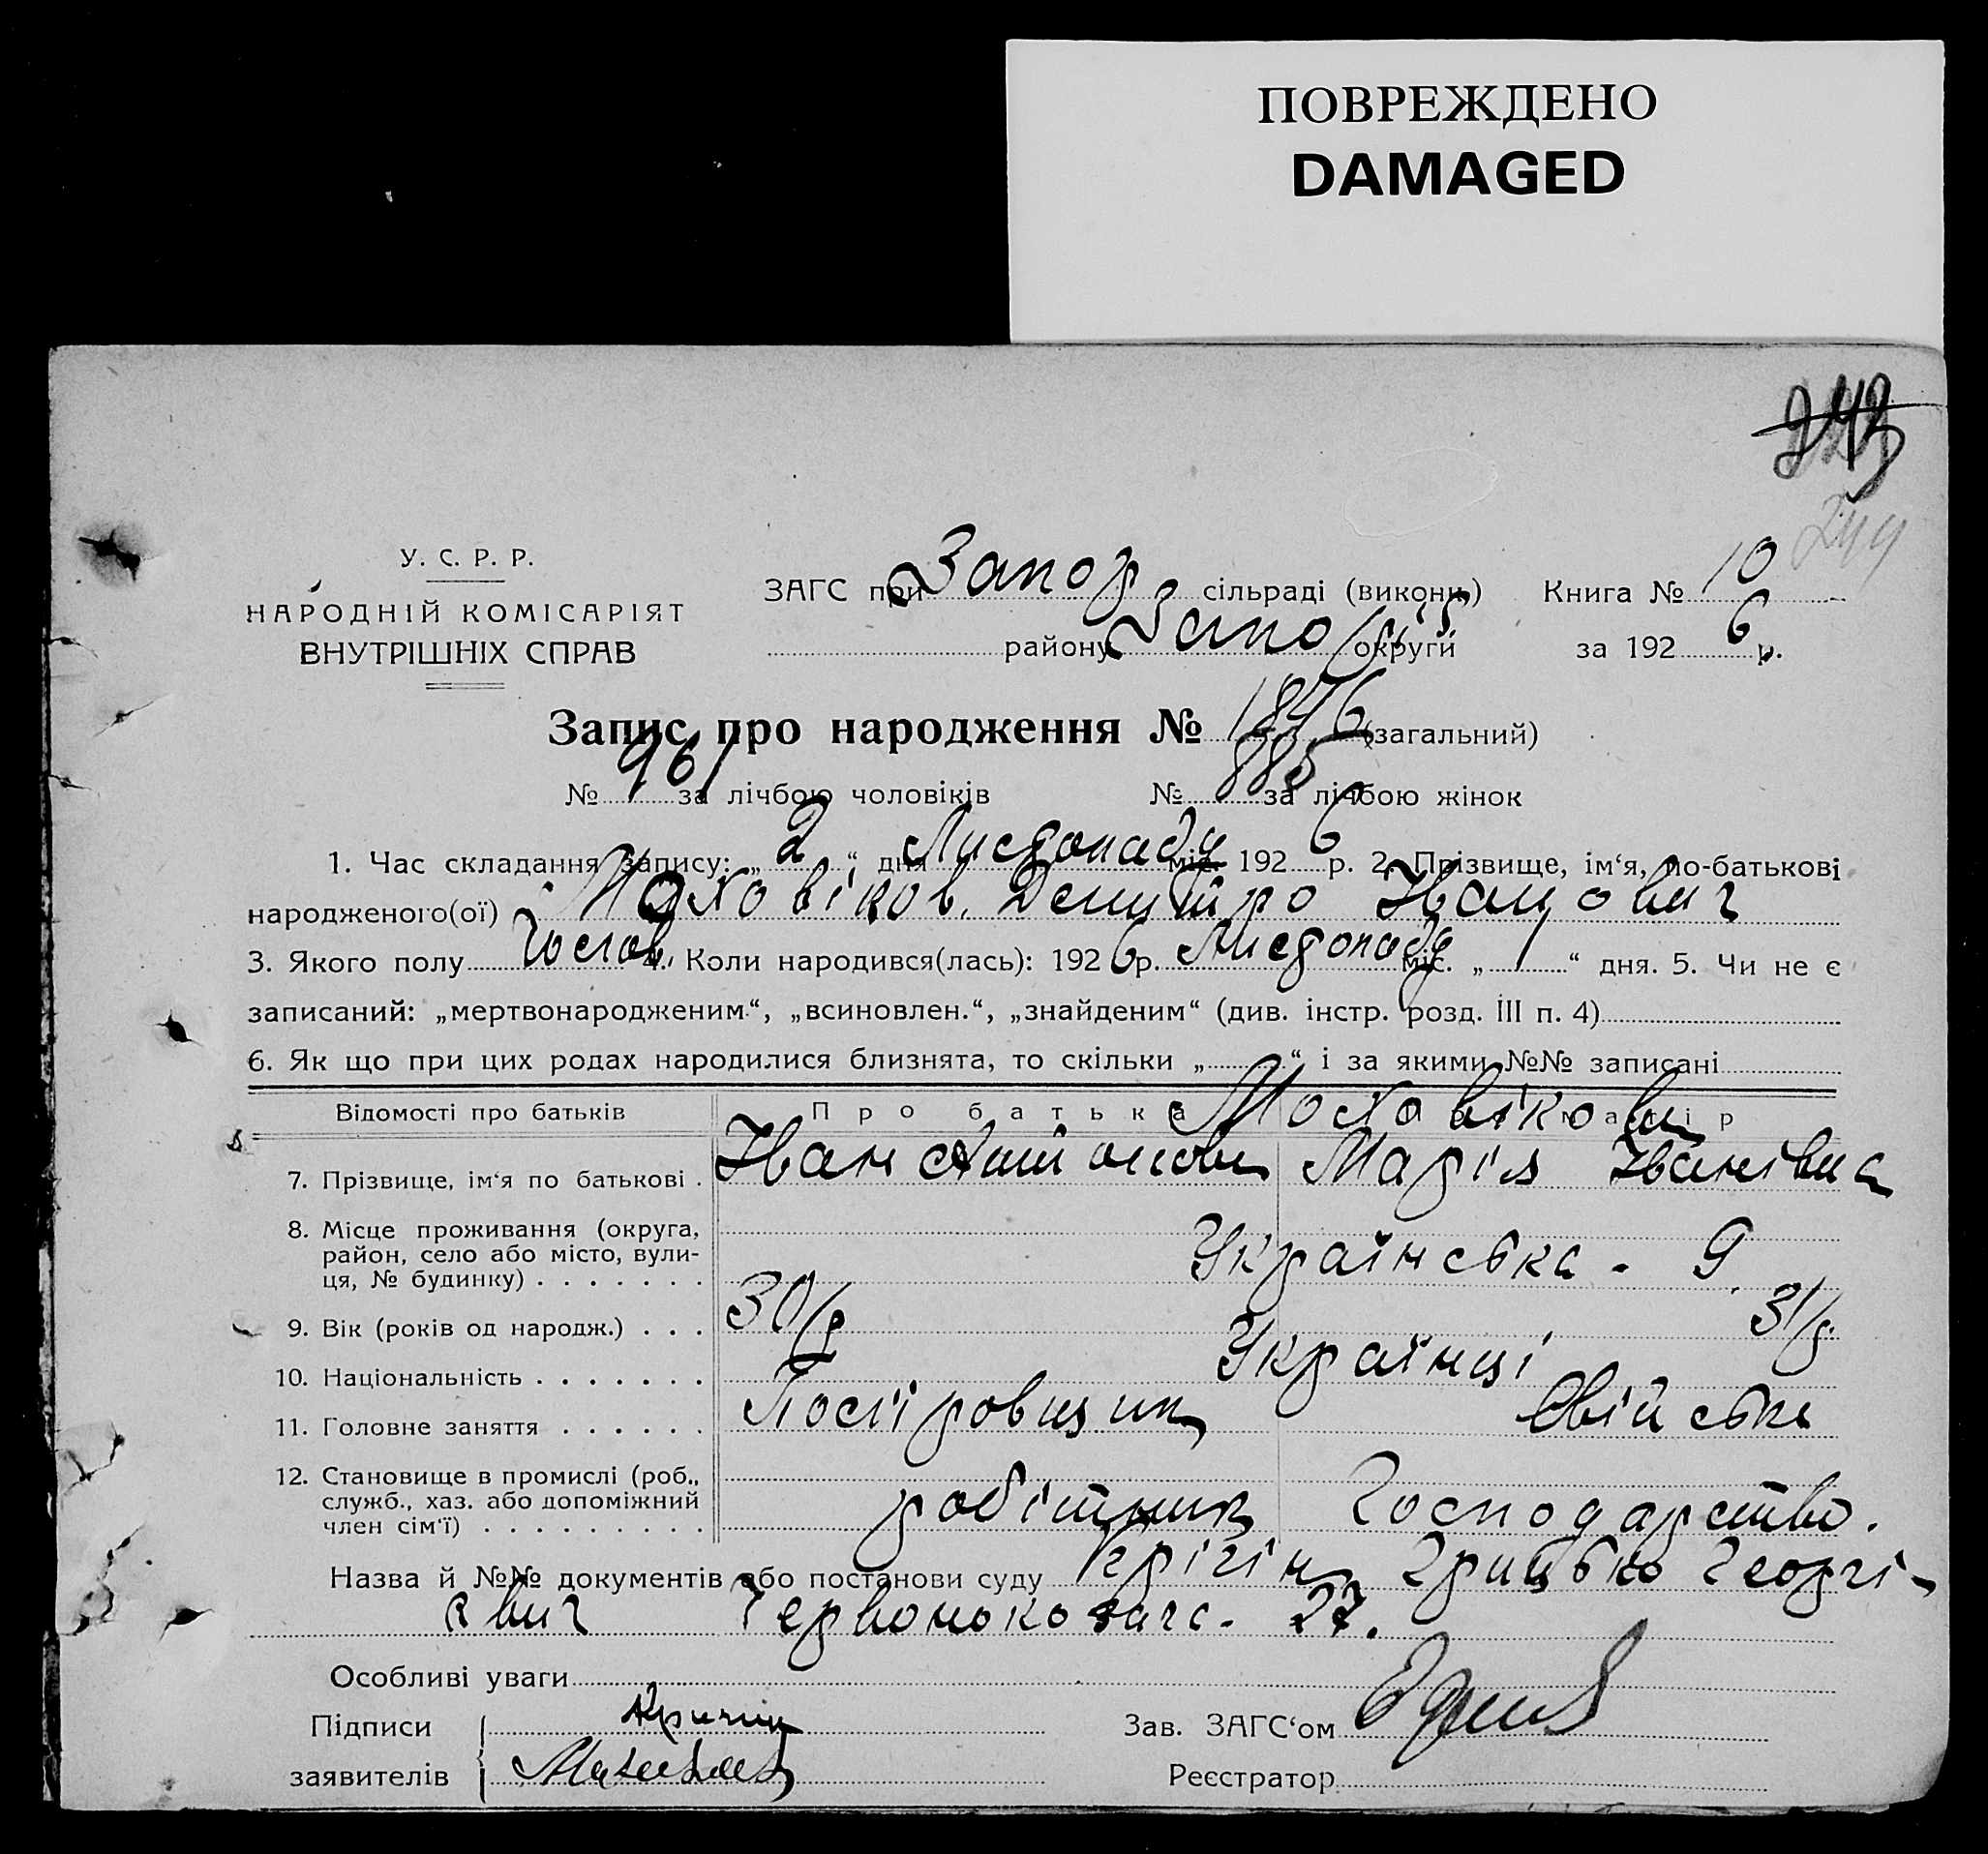 ПОВРЕЖДЕНО
DAMAGED
243
244
У. С. Р. Р.
НАРОДНІЙ КОМІСАРІЯТ
ВНУТРІШНІХ СПРАВ
ЗАГС при Запор сільраді (викони) Книга № 10
району Запоріз округи за 1926 р.
Запис про народження № 1846 (загальний)
№ 961 за лічбою чоловіків № 885 за лічбою жінок
1. Час складання запису: „2“ дня Листопаду міс. 1926 р. 2. Прізвище, ім‘я, по-батькові
народженого(ої) Маховіков. Демитро Іванович
3. Якого полу Чолов. 4. Коли народився(лась): 1926 р. Листопаду міс. „1“ дня. 5. Чи не є
записаний: „мертвонародженим“, „всиновлен.“, „знайденим“ (див. інстр. розд. III п. 4)
6. Як що при цих родах народилися близнята, то скільки „ “ і за якими №№ записані
Відомості про батьків Про батька матір
Маховікови
7. Прізвище, ім‘я по батькові . Іван Антонови Марія Іванівна
8. Місце проживання (округа,
район, село або місто, вули-
ця, № будинку) . . . . . . . Українська - 9
9. Вік (років од народж.) . . . 30/р 31/р.
10. Національність . . . . . . . Українці
11. Головне заняття . . . . . . Свійське
12. Становище в промислі (роб.,
служб., хаз. або допоміжний
член сім‘ї) . . . . . . . . . робітник Господарство.
Назва й №№ документів або постанови суду Крігін Грицько Георгі-
євич Червонокозача- 27.
Особливі уваги
Підписи Кригин
Зав. ЗАГС‘ом
заявителів
Реєстратор